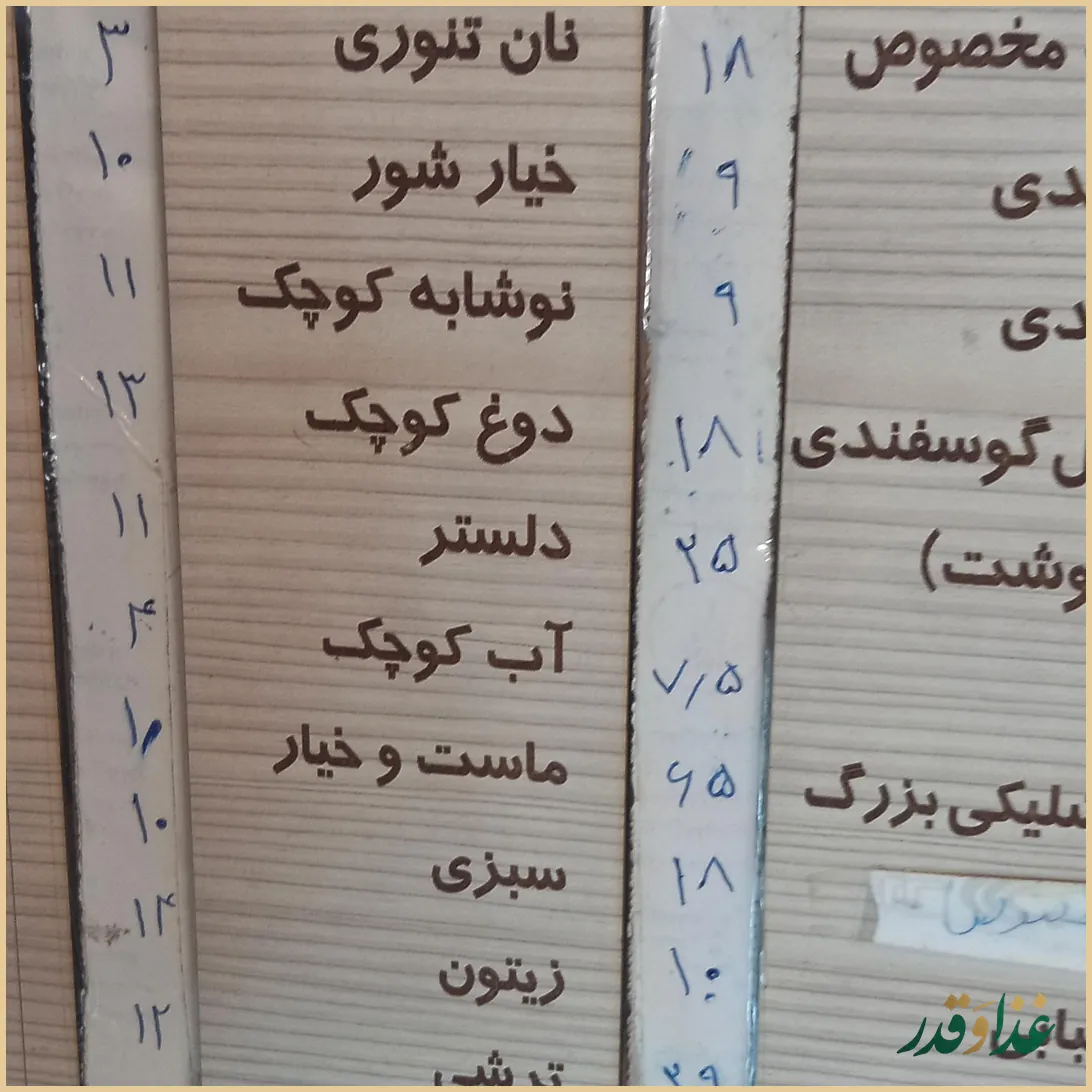 مخصوص ۱۸
دی ۹
دی ۹
گوسفندی ۱۸
وشت) ۲۵
۷٫۵
سلیکی بزرگ ۶۵
۱۸
۱۰
۲۹
نان تنوری ۳
خیار شور ۱۰
نوشابه کوچک ۱۱
دوغ کوچک ۱۳
دلستر ۱۱
آب کوچک ۴
ماست و خیار
سبزی ۱۰
زیتون ۱۴
ترشی ۱۲
غذا و قدر